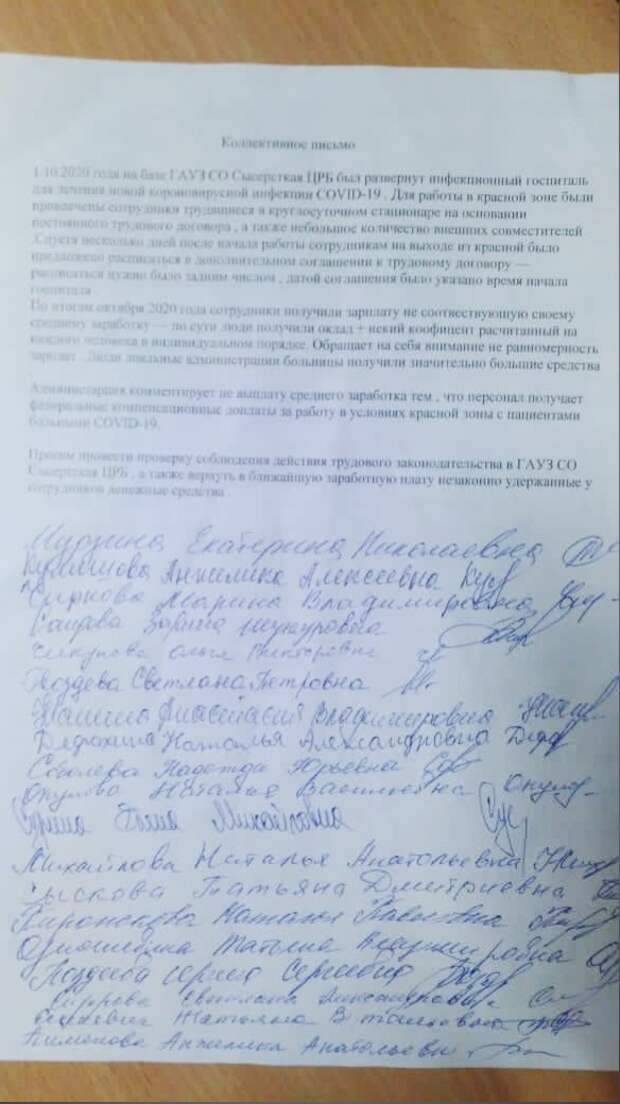 Коллективное письмо
1.10.2020 года на базе ГАУЗ СО Сысерсткая ЦРБ был развернут инфекционный госпиталь
для лечения новой короновирусной инфекции COVID-19 . Для работы в красной зоне были
привлечены сотрудники трудящиеся в круглосуточном стационаре на основании
постоянного трудового договора , а также небольшое количество внешних совместителей
.Спустя несколько дней после начала работы сотрудникам на выходе из красной было
предложено расписаться в дополнительном соглашении к трудовому договору —
расписаться нужно было задним числом , датой соглашения было указано время начала
госпиталя
По итогам октября 2020 года сотрудники получили зарплату не соотвествующую своему
среднему заработку — по сути люди получили оклад + некий коофицент расчитанный на
каждого человека в индивидуальном порядке. Обращает на себя внимание не равномерность
зарплат . Люди лояльные администрации больницы получили значительно большие средства
.
Администрация комментирует не выплату среднего заработка тем , что персонал получает
федеральные компенсационные доплаты за работу в условиях красной зоны с пациентами
больными COVID-19.
Просим провести проверку соблюдения действия трудового законодательства в ГАУЗ СО
Сысертская ЦРБ , а также вернуть в ближайшую заработную плату незаконно удержанные у
сотрудников денежные средства .
Екатерина Николаевна
Анжелика Алексеевна
Чиркова Марина Владимировна
Зарина
Ольга Викторовна
Гвоздева Светлана Петровна
Анастасия Владимировна
Наталья Александровна
Соболева Надежда Юрьевна
Окулова Наталья Васильевна
Михайловна
Михайлова Наталья Анатольевна
Татьяна Дмитриевна
Наталья Павловна
Татьяна Владимировна
Поздеева Сергеевна
Светлана Александровна
Татьяна Витальевна
Пименова Анжелика Анатольевна